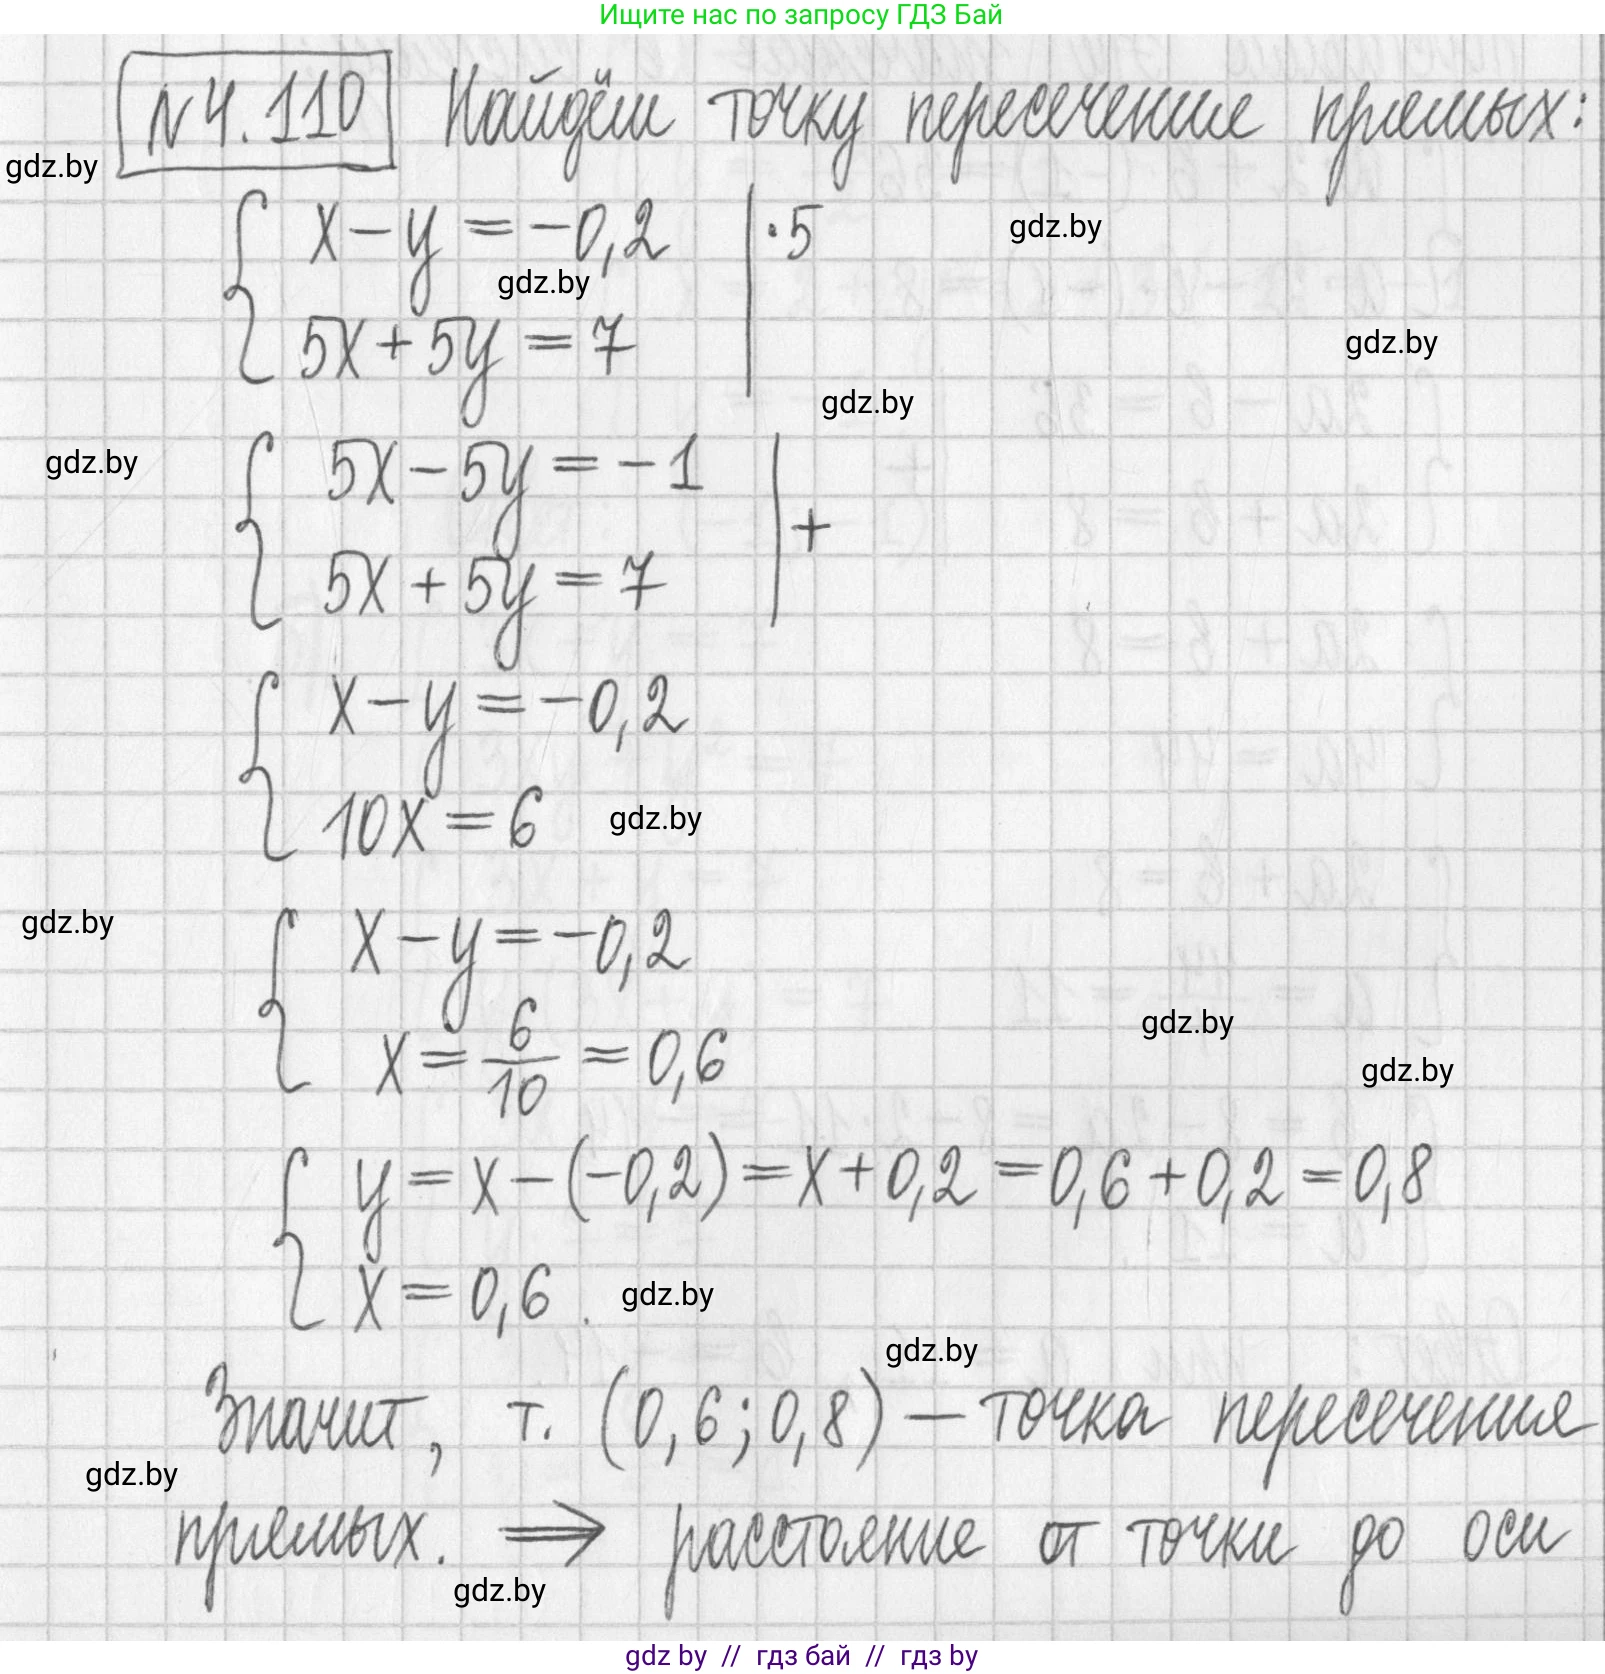 Ищите нас по запросу ГДЗ Бай
N4.110 Найдём точку пересечение прямых:
gdz.by
x-y=-0,2 |·5
gdz.by
gdz.by
5x+5y=7
gdz.by
gdz.by
5x-5y=-1 |+
gdz.by
5x+5y=7
x-y=-0,2
10x=6
gdz.by
x-y=-0,2
gdz.by
x=6/10=0,6
gdz.by
gdz.by
y=x-(-0,2)=x+0,2=0,6+0,2=0,8
x=0,6.
gdz.by
gdz.by
Значит, т. (0,6;0,8) — точка пересечения
gdz.by
прямых. ⇒ расстояние от точки до оси
gdz.by
gdz by // гдз бай // гдз by